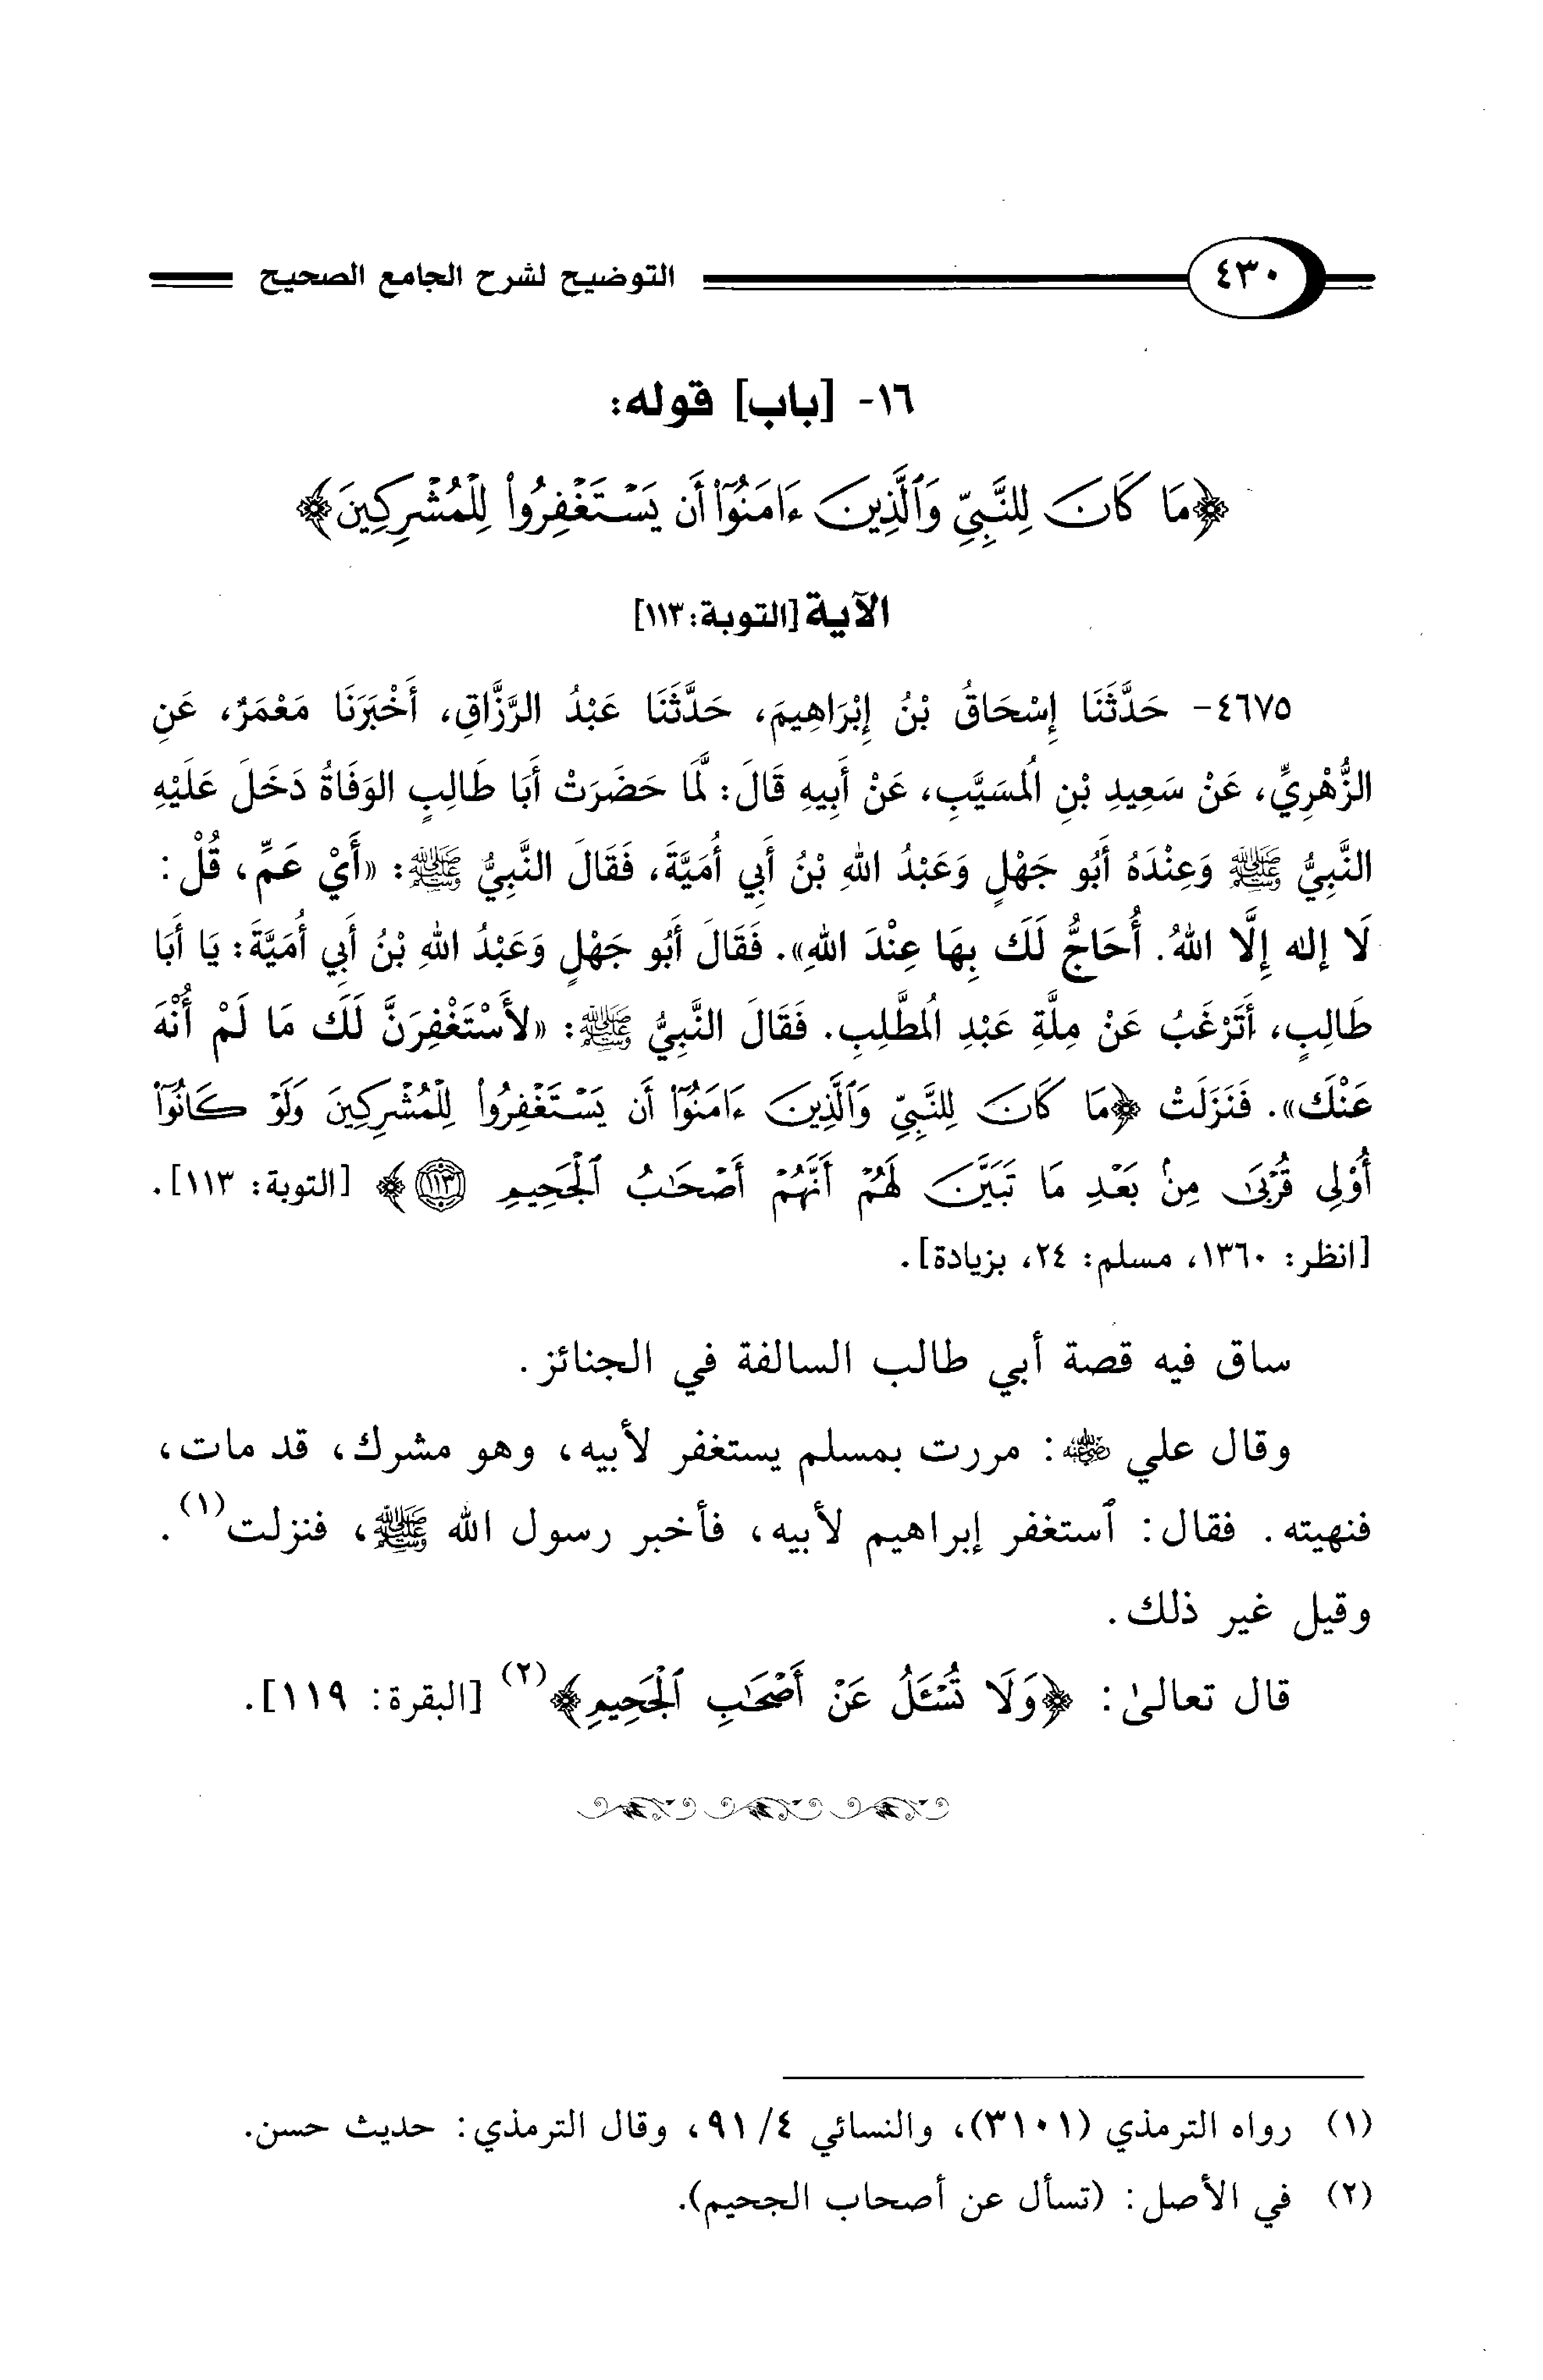 ٤٣٠ التوضيح لشرح الجامع الصحيح
١٦- [باب] قوله:
﴿مَا كَانَ لِلنَّبِيِّ وَٱلَّذِينَ ءَامَنُوٓا۟ أَن يَسْتَغْفِرُوا۟ لِلْمُشْرِكِينَ﴾
الآية [التوبة: ١١٣]
٤٦٧٥- حَدَّثَنَا إِسْحَاقُ بْنُ إِبْرَاهِيمَ، حَدَّثَنَا عَبْدُ الرَّزَّاقِ، أَخْبَرَنَا مَعْمَرٌ، عَنِ
الزُّهْرِيِّ، عَنْ سَعِيدِ بْنِ الُمسَيَّبِ، عَنْ أَبِيهِ قَالَ: لَمَّا حَضَرَتْ أَبَا طَالِبٍ الوَفَاةُ دَخَلَ عَلَيْهِ
النَّبِيُّ ﷺ وَعِنْدَهُ أَبُو جَهْلٍ وَعَبْدُ اللهِ بْنُ أَبِي أُمَيَّةَ، فَقَالَ النَّبِيُّ ﷺ: «أَيْ عَمِّ، قُلْ:
لَا إله إِلَّا اللهُ. أُحَاجُّ لَكَ بِهَا عِنْدَ اللهِ». فَقَالَ أَبُو جَهْلٍ وَعَبْدُ اللهِ بْنُ أَبِي أُمَيَّةَ: يَا أَبَا
طَالِبٍ، أَتَرْغَبُ عَنْ مِلَّةِ عَبْدِ الُمطَّلِبِ. فَقَالَ النَّبِيُّ ﷺ: «لأَسْتَغْفِرَنَّ لَكَ مَا لَمْ أُنْهَ
عَنْكَ». فَنَزَلَتْ ﴿مَا كَانَ لِلنَّبِيِّ وَٱلَّذِينَ ءَامَنُوٓا۟ أَن يَسْتَغْفِرُوا۟ لِلْمُشْرِكِينَ وَلَوْ كَانُوٓا۟
أُو۟لِى قُرْبَىٰ مِنۢ بَعْدِ مَا تَبَيَّنَ لَهُمْ أَنَّهُمْ أَصْحَٰبُ ٱلْجَحِيمِ ١١٣﴾ [التوبة: ١١٣].
[انظر: ١٣٦٠، مسلم: ٢٤، بزيادة].
ساق فيه قصة أبي طالب السالفة في الجنائز.
وقال علي ﵁: مررت بمسلم يستغفر لأبيه، وهو مشرك، قد مات،
فنهيته. فقال: ٱستغفر إبراهيم لأبيه، فأخبر رسول الله ﷺ، فنزلت(١).
وقيل غير ذلك.
قال تعالىٰ: ﴿وَلَا تُسْـَٔلُ عَنْ أَصْحَٰبِ ٱلْجَحِيمِ﴾(٢) [البقرة: ١١٩].
(١) رواه الترمذي (٣١٠١)، والنسائي ٤/ ٩١، وقال الترمذي: حديث حسن.
(٢) في الأصل: (تسأل عن أصحاب الجحيم).